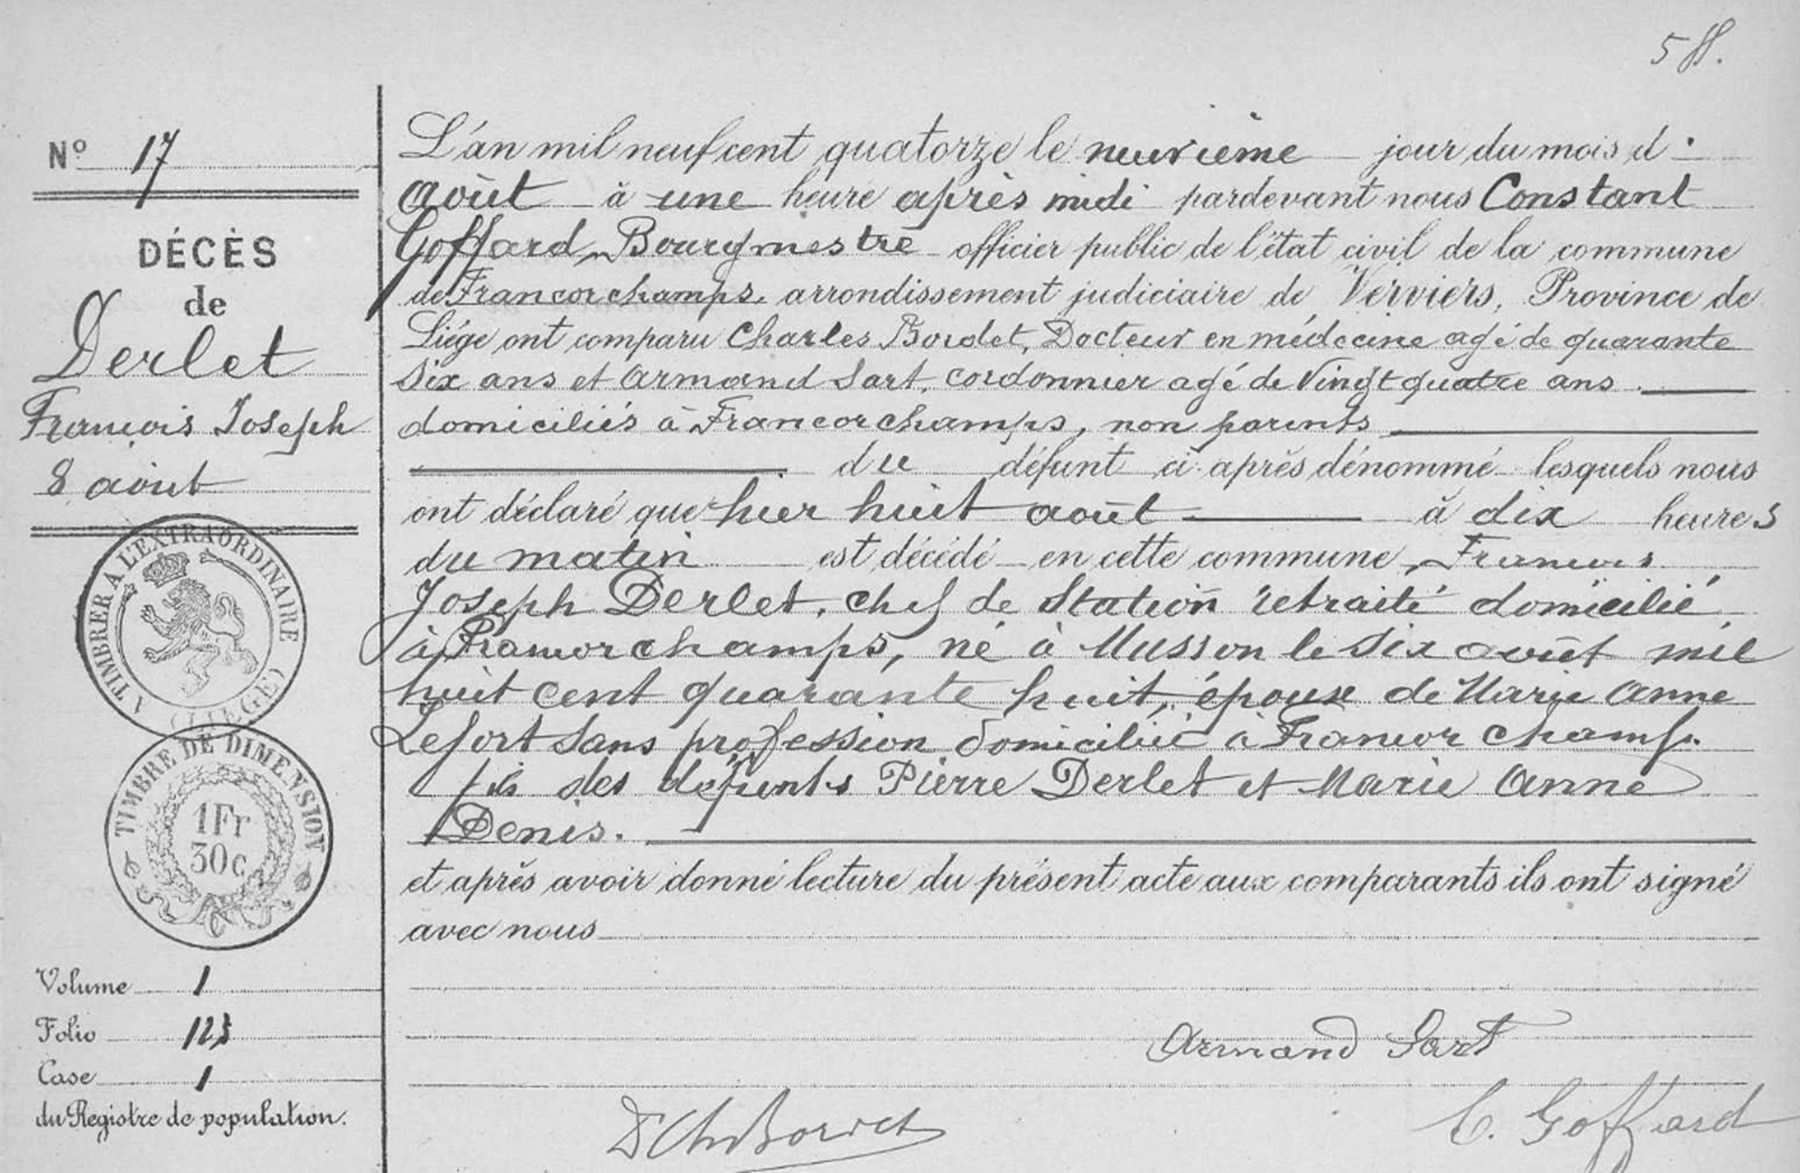 58.
Nº 17
DÉCÈS
de
Derlet
François Joseph
8 août
A TIMBRER A L'EXTRAORDINAIRE
(LIÈGE)
TIMBRE DE DIMENSION
1Fr
30c
Volume 1
Folio 123
Case 1
du Registre de population.
L'an mil neuf cent quatorze le neuvième jour du mois d'
août à une heure après midi pardevant nous Constant
Goffard, Bourgmestre officier public de l'état civil de la commune
de Francorchamps, arrondissement judiciaire de Verviers, Province de
Liége ont comparu Charles Bordet, Docteur en médecine agé de quarante
six ans et Armand Sart, cordonnier agé de vingt quatre ans
domiciliés à Francorchamps, non parents
du défunt ci-après dénommé lesquels nous
ont déclaré que hier huit août à dix heures
du matin est décédé en cette commune, François
Joseph Derlet, chef de Station retraité domicilié
à Francorchamps, né à Musson le six août mil
huit cent quarante huit, époux de Marie Anne
Lefort sans profession domiciliée à Francorchamps.
fils des défunts Pierre Derlet et Marie Anne
Denis.
et après avoir donné lecture du présent acte aux comparants ils ont signé
avec nous
Armand Sart
Dr Ch Bordet
C. Goffard